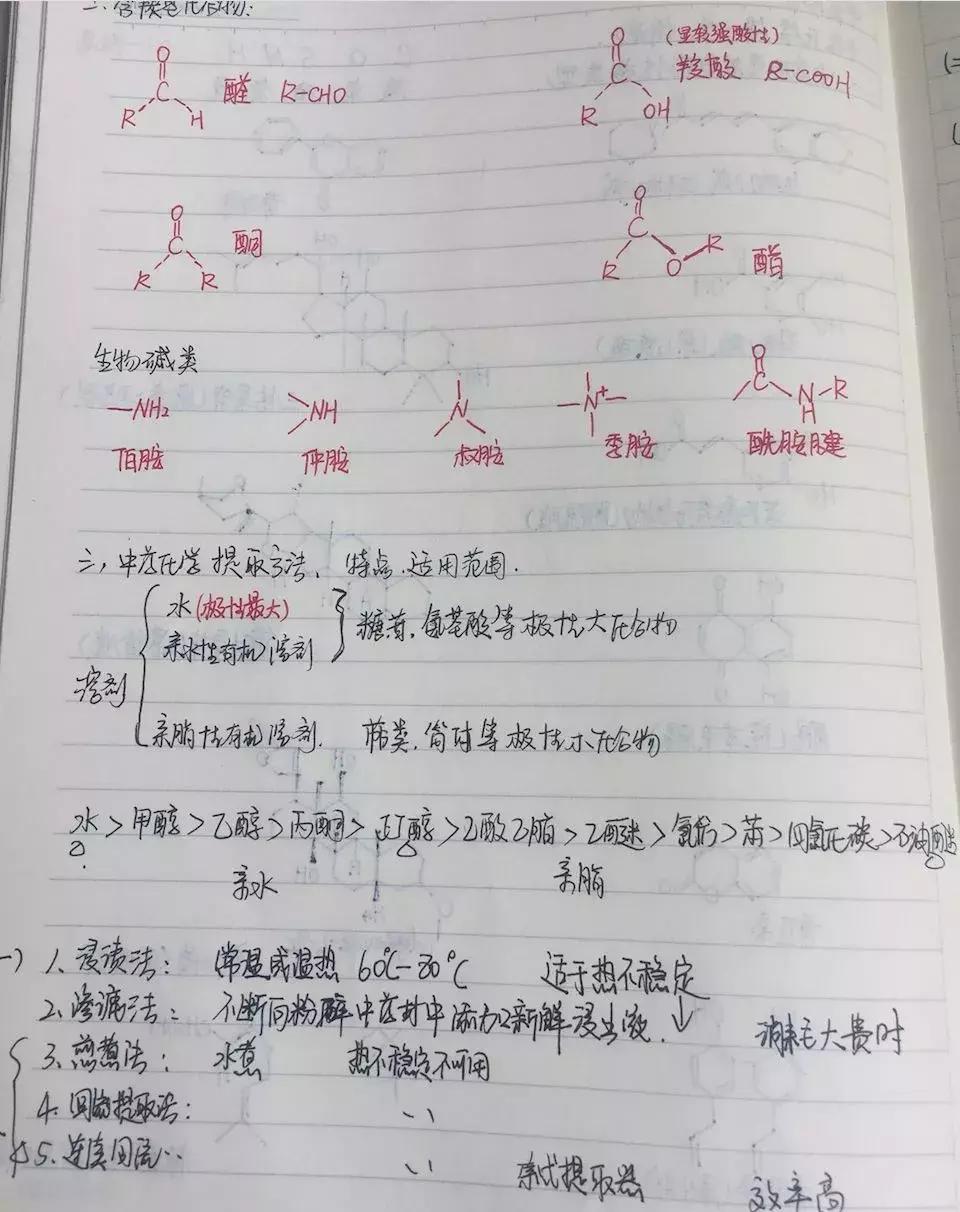 二、含羰基化合物:
O
C
R H
醛 R-CHO
(显较强酸性)
O
C
R OH
羧酸 R-COOH
O
C
R R
酮
O
C
R O R
酯
生物碱类
—NH₂ NH N —N⁺— O C N H R
伯胺 仲胺 叔胺 季胺 酰胺键
三、中药化学提取方法、特点、适用范围.
溶剂
水(极性最大)
亲水性有机溶剂
糖苷、氨基酸等极性大化合物
亲脂性有机溶剂. 萜类、甾体等极性小化合物
水>甲醇>乙醇>丙酮>正丁醇>乙酸乙脂>乙醚>氯仿>苯>四氯化碳>石油醚
亲水 亲脂
一) 1、浸渍法: 常温或温热 60℃-80℃ 适于热不稳定
2、渗漉法: 不断向粉碎中药材中添加新鲜浸出液. ↓ 消耗大费时
3、煎煮法: 水煮 热不稳定不可用
4、回流提取法: 、、
5、连续回流.. 、、 索式提取器 效率高